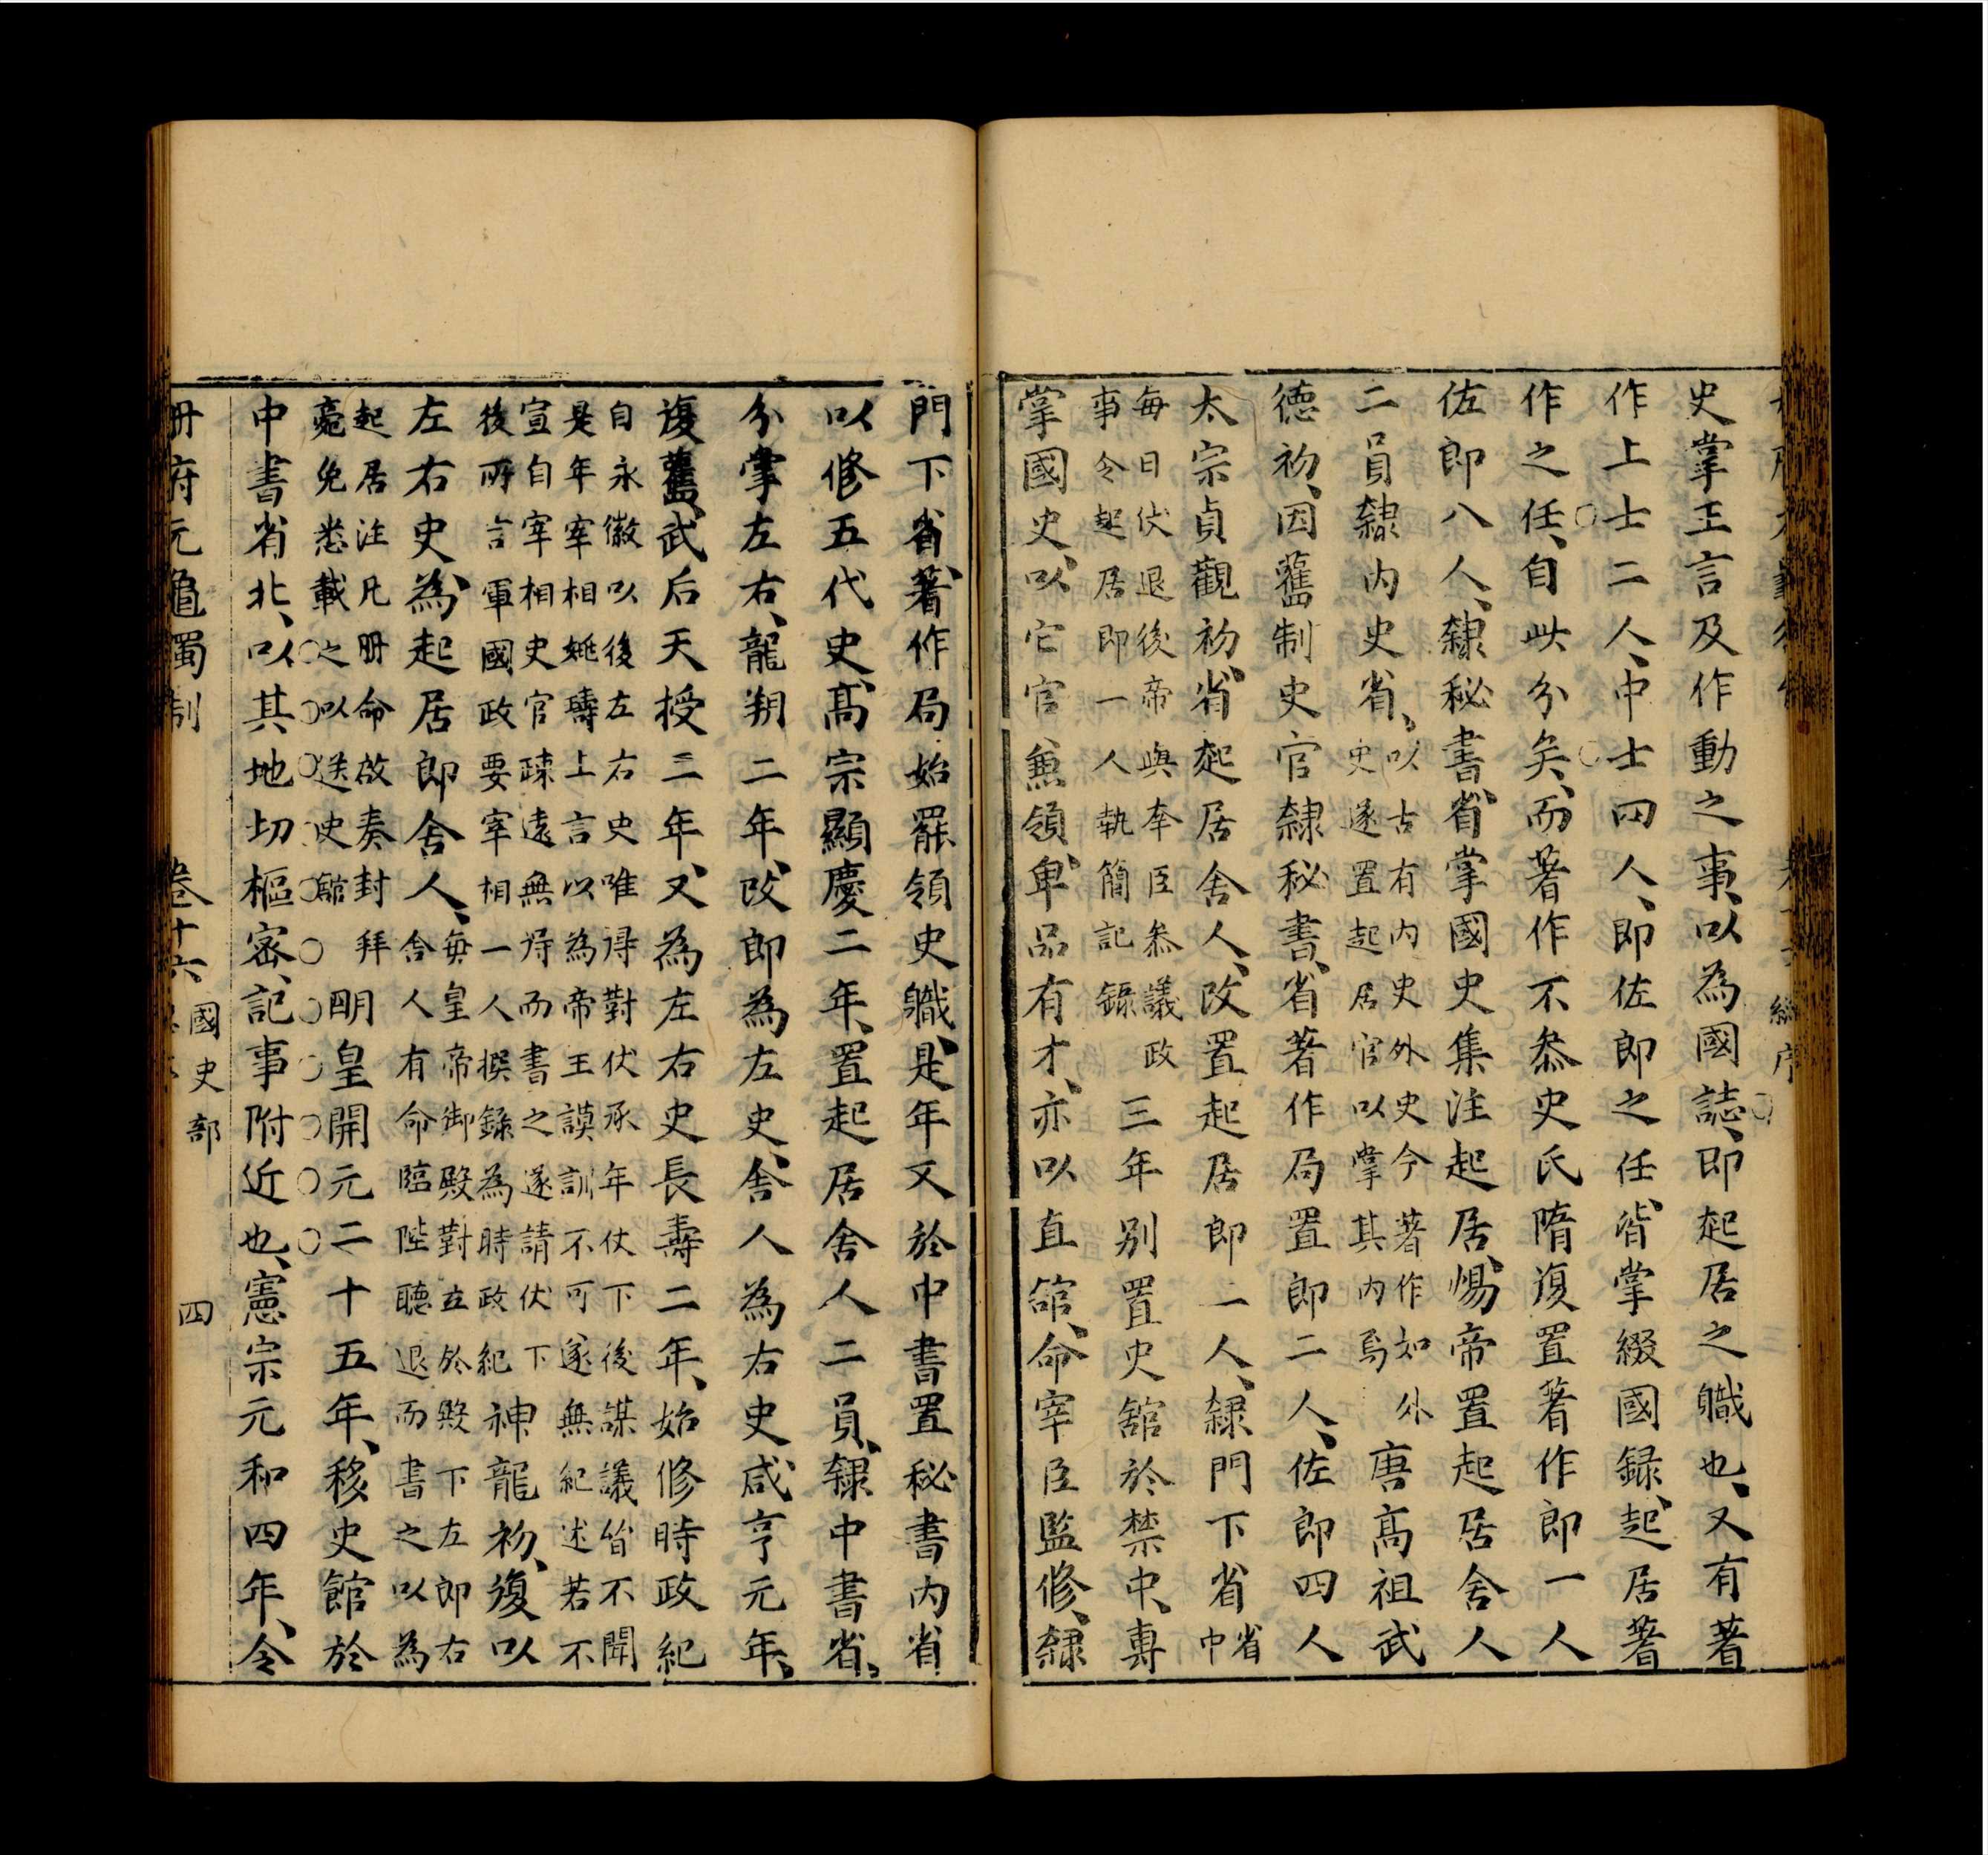 史掌王言及作動之事以為國誌即起居之職也又有著
作上士二人中士四人即佐郎之任皆掌綴國録起居著
作之任自此分矣而著作不叅史氏隋復置著作郎一人
佐郎八人隸秘書省掌國史集注起居煬帝置起居舍人
二員隸内史省以古有内史外史今著作如外
史遂置起居官以掌其内焉唐髙祖武
徳初因舊制史官隸秘書省著作局置郎二人佐郎四人
太宗貞觀初省起居舍人改置起居郎二人隸門下省省
中
每日仗退後帝與宰臣叅議政
事令起居郎一人執簡記録三年别置史舘於禁中專
掌國史以它官兼領卑品有才亦以直舘命宰臣監修隸
門下省著作局始罷領史職是年又於中書置秘書内省
以修五代史髙宗顯慶二年置起居舍人二員隸中書省
分掌左右龍朔二年改郎為左史舍人為右史咸亨元年
復舊武后天授二年又為左右史長壽二年始修時政紀
自永徽以後左右史唯得對仗承年仗下後謀議皆不聞
是年宰相姚璹上言以為帝王謨訓不可遂無紀述若不
宣自宰相史官疎遠無得而書之遂請仗下
後所言軍國政要宰相一人撰録為時政紀神龍初復以
左右史為起居郎舍人每皇帝御殿對立於殿下左郎右
舍人有命臨陛聽退而書之以為
起居注凡册命啟奏封拜
薨免悉載之以送史舘明皇開元二十五年移史館於
中書省北以其地切樞密記事附近也憲宗元和四年令
册府元龜獨制 卷十六 國史部 四